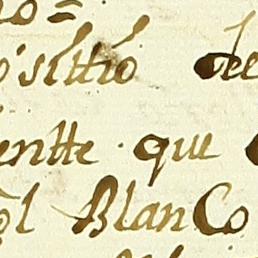 sittio de
entte que
ol BlanCo